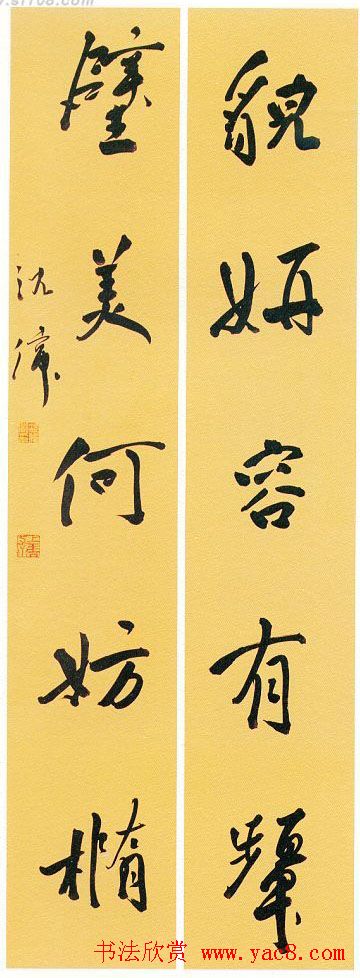 貌妍容有颦
璧美何妨椭
沈伟
书法欣赏
www.yac8.com